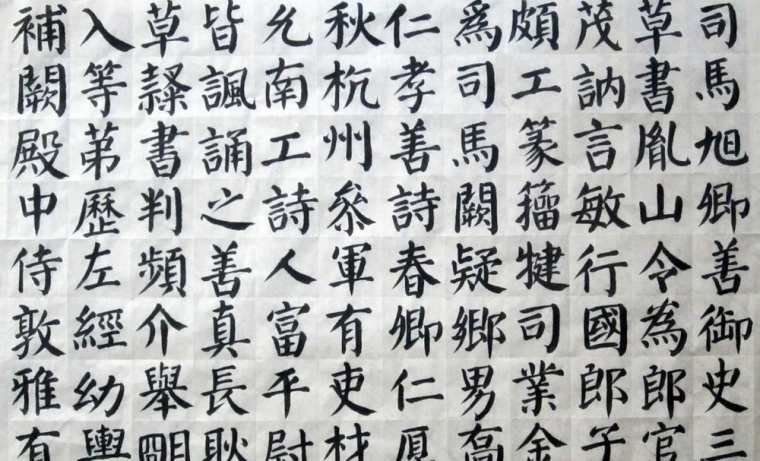 司馬旭卿善御史三
草書胤山令為郎官
茂訥言敏行國郎子
頗工篆籀犍司業金
爲司馬闕疑鄉男高
仁孝善詩春卿仁厚
秋杭州叅軍有吏材
允南工詩人富平尉
皆諷誦之善真長耿
草隸書判頻介舉明
入等苐歷左經幼輿
補闕殿中侍敦雅有